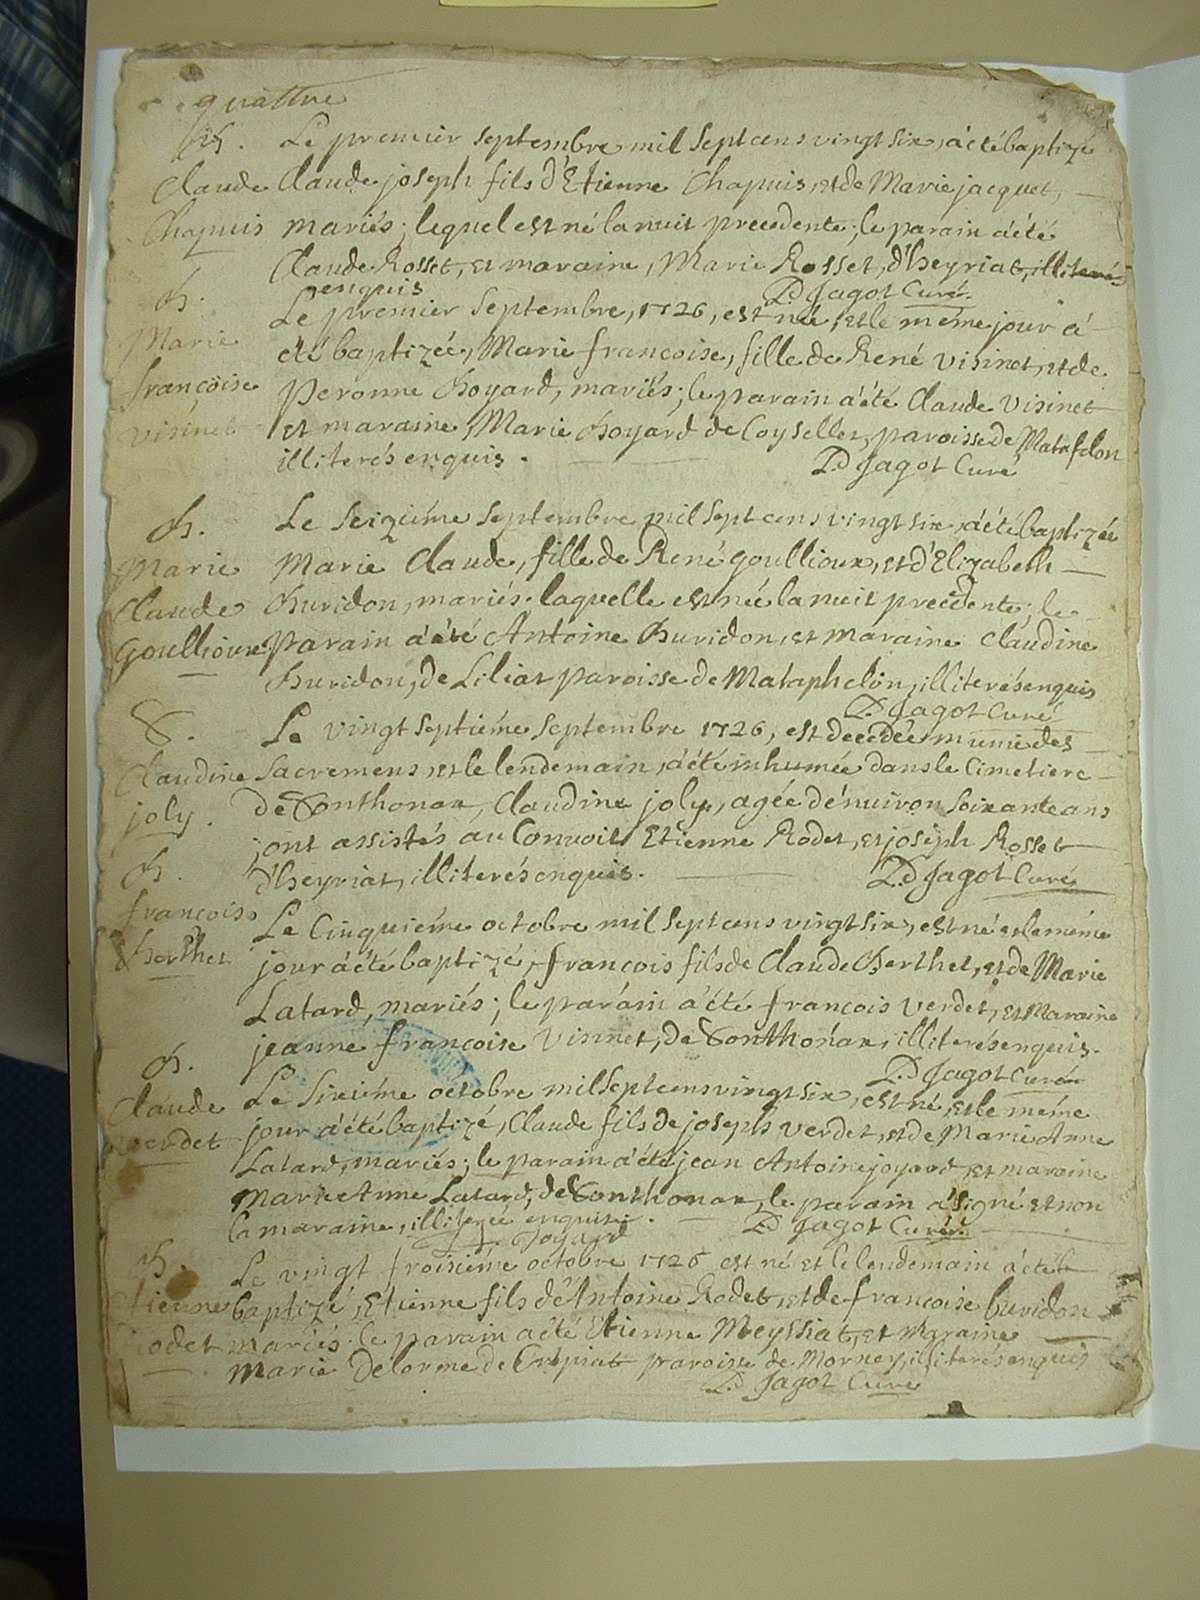 quattre
B. Le premier septembre mil sept cens vingt six, a été baptizé
Claude Claude joseph fils d'Etienne Chapuis, et de Marie jacquet,
Chapuis mariés; lequel est né la nuit precedente; le parain a été
Claude Rosset, et maraine, Marie Rosset, d'heyriat, illiterés
enquis D.d Jagot Curé.
B. Le premier septembre, 1726, est née, et le méme jour a
Marie été baptizée, Marie francoise, fille de René visinet, et de
françoise Peronne Boyard, mariés; le parain a été Claude visinet
visinet et maraine, Marie Boyard de Coyselles, paroisse de Matafelon
illiterés enquis. D.d Jagot Curé
B. Le seiziéme septembre mil sept cens vingt six, a été baptizée
Marie Marie Claude, fille de René goullioux, et d'Elizabeth
Claude Buridon, mariés. laquelle est née la nuit precedente; le
Goullioux Parain a été Antoine Buridon, et maraine Claudine
Buridon, de Liliat paroisse de Mataphelon, illiterés enquis
D.d Jagot Curé
S. Le vingt septiéme septembre 1726, est decedée munie des
Claudine sacremens, et le lendemain, a été inhumée dans le Cimetiere
joly. de Sonthonax, Claudine joly, agée d'enuiron soixante ans
ont assistés au Convoit Etienne Rodet, et joseph Rosset
B. d'heyriat, illiterés enquis. D.d Jagot Curé
francois Le Cinquiéme octobre mil sept cens vingt six, est né et le méme
Berthet jour a été baptizé, francois fils de Claude Berthet, et de Marie
Latard, mariés; le parain a été francois verdet, et Maraine
jeanne francoise visinet, de Sonthonax, illiterés enquis.
B. D.d Jagot Curé
Claude Le sixiéme octobre mil sept cens vingt six, est né, et le méme
verdet jour a été baptizé, Claude fils de joseph verdet, et de Marie Anne
Latard, mariés; le parain a été jean Antoine joyard, et maraine
Marie Anne Latard, de Sonthonax, le parain a signé et non
la maraine, illiterée enquise. D.d Jagot Curé.
Joyard
B. Le vingt troisiéme octobre 1726 est né et le lendemain a été
Etienne baptizé, Etienne fils d'Antoine Rodet, et de francoise buridon
Rodet mariés. le parain a été Etienne Meyssiat, et Maraine
Marie Delorme de Crépiat paroisse de Mornay, illiterés enquis
D.d Jagot Curé